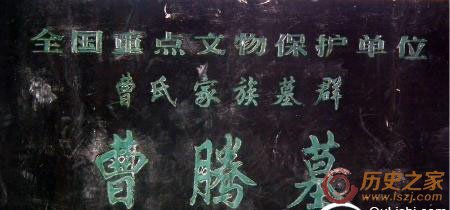 全国重点文物保护单位
曹氏家族墓群
曹腾墓
历史之家
www.lszj.com
QuLishi.com